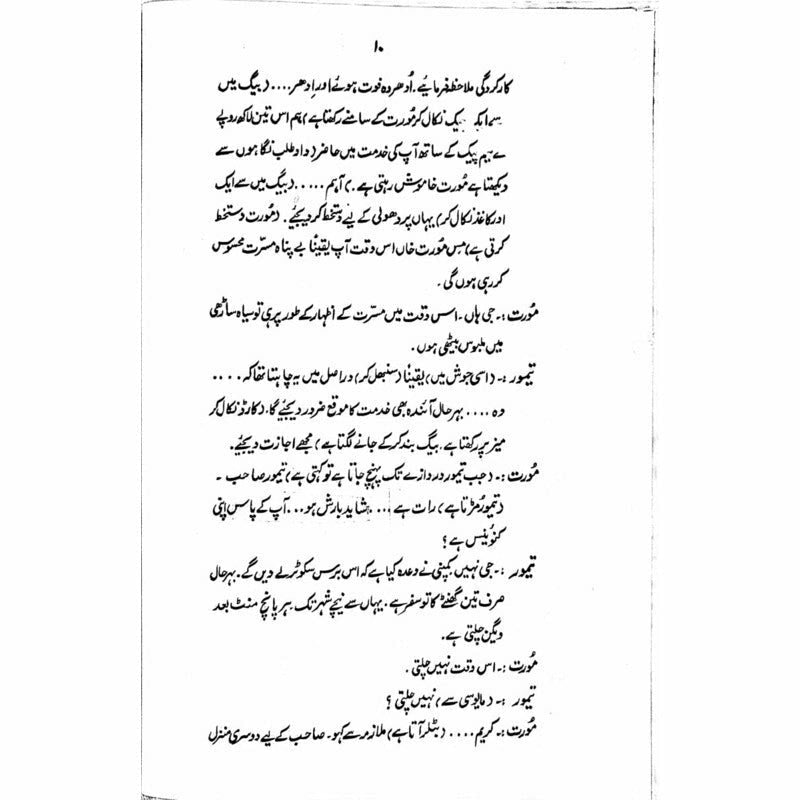 ۱۰
کارکردگی ملاحظہ فرمایئے۔ اُدھر وہ فوت ہوئے اور اِدھر .... (بیگ میں
سے ایک چیک نکال کر مُورت کے سامنے رکھتا ہے) ہم اس تین لاکھ روپے
کے ساتھ آپ کی خدمت میں حاضر (داد طلب نگاہوں سے
دیکھتا ہے مُورت خاموش رہتی ہے۔) آہم ..... (بیگ میں سے ایک
اور کاغذ نکال کر) یہاں پر وصولی کے لیے دستخط کر دیجئے۔ (مُورت دستخط
کرتی ہے) مِس مُورت خاں اس وقت آپ یقیناً بے پناہ مسرّت محسوس
کر رہی ہوں گی۔
مُورت :۔ جی ہاں۔ اس وقت میں مسرّت کے اظہار کے طور پر ہی تو سیاہ ساڑھی
میں ملبوس بیٹھی ہوں۔
تیمور :۔ (اسی جوش میں) یقیناً (سنبھل کر) دراصل میں یہ چاہتا تھا کہ ....
وہ .... بہرحال آئندہ بھی خدمت کا موقع ضرور دیجئے گا۔ (کارڈ نکال کر
میز پر رکھتا ہے بیگ بند کر کے جانے لگتا ہے) مجھے اجازت دیجئے۔
مُورت :۔ (جب تیمور دروازے تک پہنچ جاتا ہے تو کہتی ہے) تیمور صاحب ۔
(تیمور مُڑتا ہے) رات ہے .... شاید بارش ہو ... آپ کے پاس اپنی
کنوینس ہے؟
تیمور :۔ جی نہیں کمپنی نے وعدہ کیا ہے کہ اس برس سکوٹر لے دیں گے۔ بہرحال
صرف تین گھنٹے کا تو سفر ہے۔ یہاں سے نیچے شہر تک ہر پانچ منٹ بعد
ویگن چلتی ہے۔
مُورت :۔ اس وقت نہیں چلتی۔
تیمور :۔ (مایوسی سے) نہیں چلتی؟
مُورت :۔ کریم .... (بٹلر آتا ہے) ملازمہ سے کہو۔ صاحب کے لیے دوسری منزل